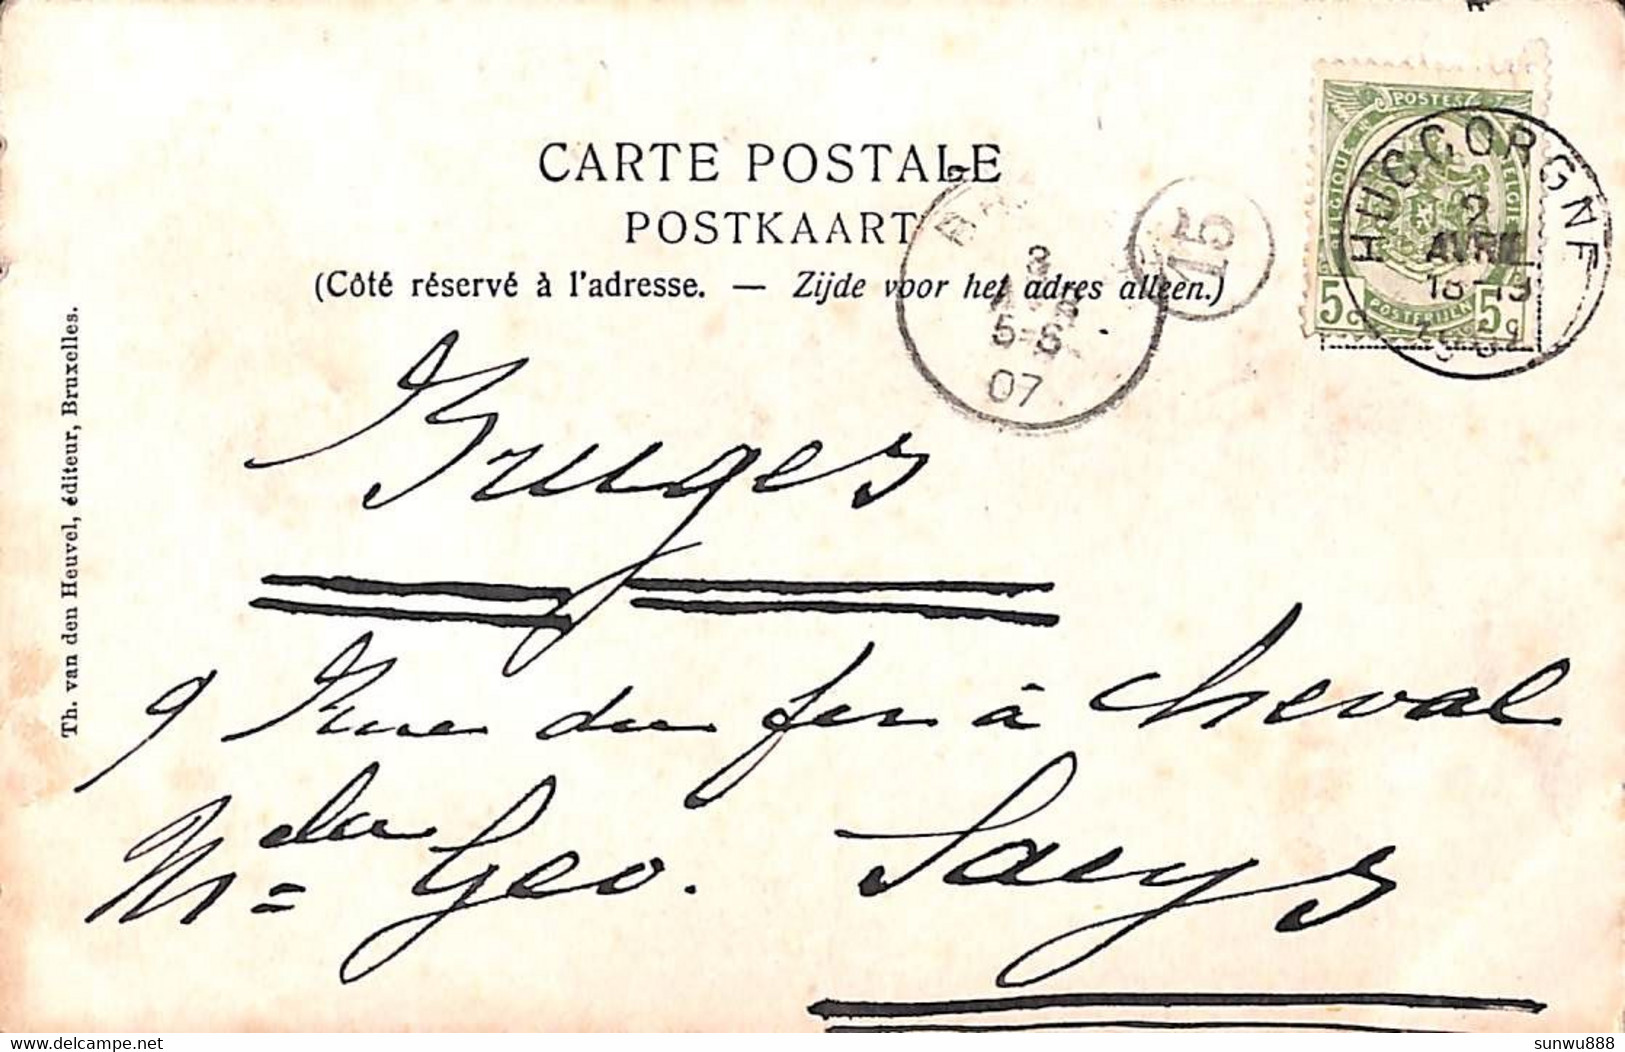 CARTE POSTALE
POSTKAART
(Côté réservé à l'adresse. — Zijde voor het adres alleen.)
Th. van den Heuvel, éditeur, Bruxelles.
POSTES
BELGIQUE
BELGIE
5c
POSTERIJEN
5c
HUCCORGNE
2
AVRIL
18-19
3
5-6
07
15
Bruges
9 Rue du fer à cheval
Geo. Saeys
delcampe.net
sunwu888